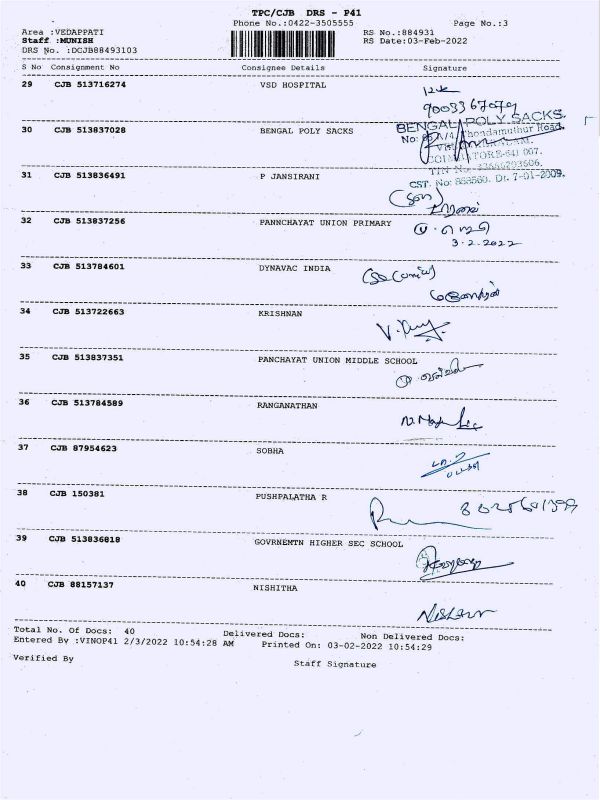 TPC/CJB DRS - P41
Phone No.:0422-3505555
Page No.:3
Area :VEDAPPATI
RS No.:884931
Staff :MUNISH
RS Date:03-Feb-2022
DRS No. :DCJB88493103
S No Consignment No Consignee Details Signature
29 CJB 513716274 VSD HOSPITAL
30 CJB 513837028 BENGAL POLY SACKS
BENGAL POLY SACKS.
Thondamuthur Road,
CST. No: Dt. 7-01-2009.
31 CJB 513836491 P JANSIRANI
32 CJB 513837256 PANNCHAYAT UNION PRIMARY
3.2.2022
33 CJB 513784601 DYNAVAC INDIA
34 CJB 513722663 KRISHNAN
35 CJB 513837351 PANCHAYAT UNION MIDDLE SCHOOL
36 CJB 513784589 RANGANATHAN
37 CJB 87954623 SOBHA
38 CJB 150381 PUSHPALATHA R
39 CJB 513836818 GOVRNEMTN HIGHER SEC SCHOOL
40 CJB 88157137 NISHITHA
Total No. Of Docs: 40 Delivered Docs: Non Delivered Docs:
Entered By :VINOP41 2/3/2022 10:54:28 AM Printed On: 03-02-2022 10:54:29
Verified By Staff Signature